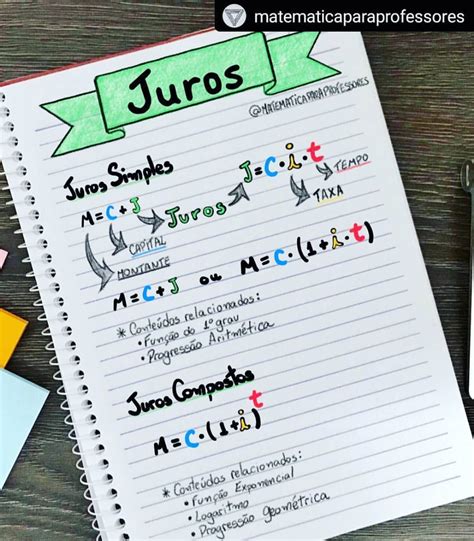 matematicaparaprofessores
Juros
@MATEMATICAPARAPROFESSORES
Juros Simples
M = C + J
Juros
J = C · i · t
TEMPO
TAXA
CAPITAL
MONTANTE
M = C + J ou M = C · (1 + i · t)
* Conteúdos relacionados:
• Função do 1º grau
• Progressão Aritmética
Juros Compostos
M = C · (1 + i)^t
* Conteúdos relacionados:
• Função Exponencial
• Logaritmo
• Progressão geométrica